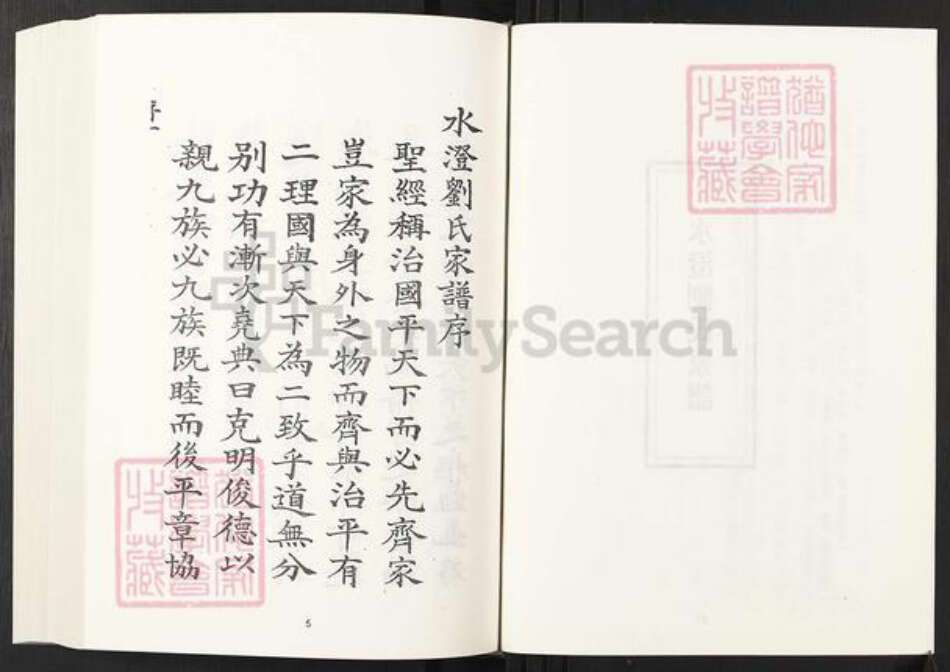 水澄劉氏家譜序
聖經稱治國平天下而必先齊家
豈家為身外之物而齊與治平有
二理國與天下為二致乎道無分
別功有漸次堯典曰克明俊德以
親九族必九族既睦而後平章協
序一
5
FamilySearch
譜學會
收藏
譜學會
收藏